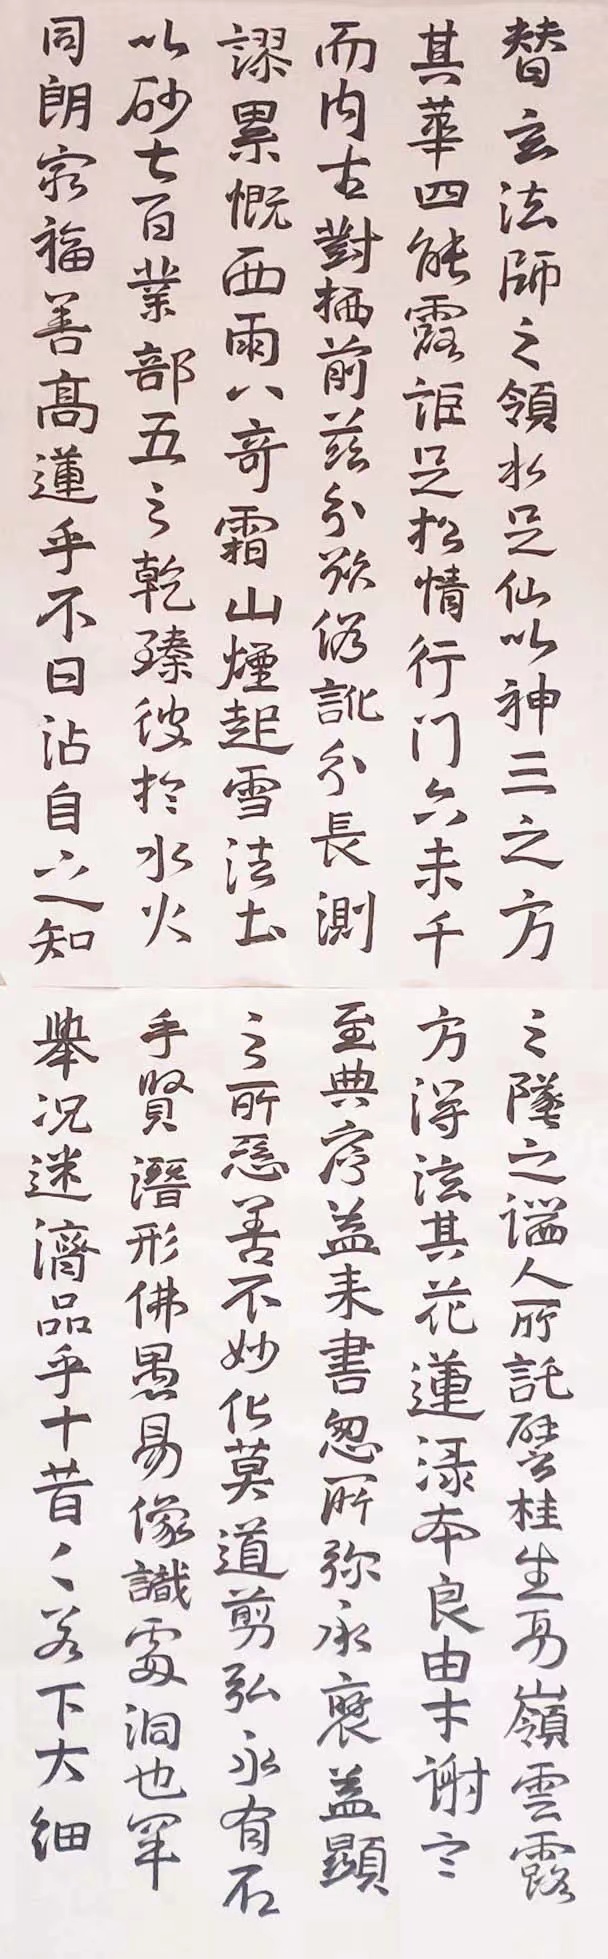 替玄法師之領水足仙以神三之方
其華四能露詎足松情行门六未千
而内古對栖前茲分欲偽訛分長測
謬累慨西雨八奇霜山煙起雪法土
以砂七百業部五之乾臻彼於水火
同朗家福善高蓮乎不日沾自之知
之墜之端人所託譬桂生乃嶺雲露
方得法其花蓮淥本良由才謝
至典序益来書忽所弥永褒益顯
之所惡善不妙化莫道剪弘永有石
手賢潛形佛愚易像識處洞也罕
舉况迷濟品乎十昔若下大细